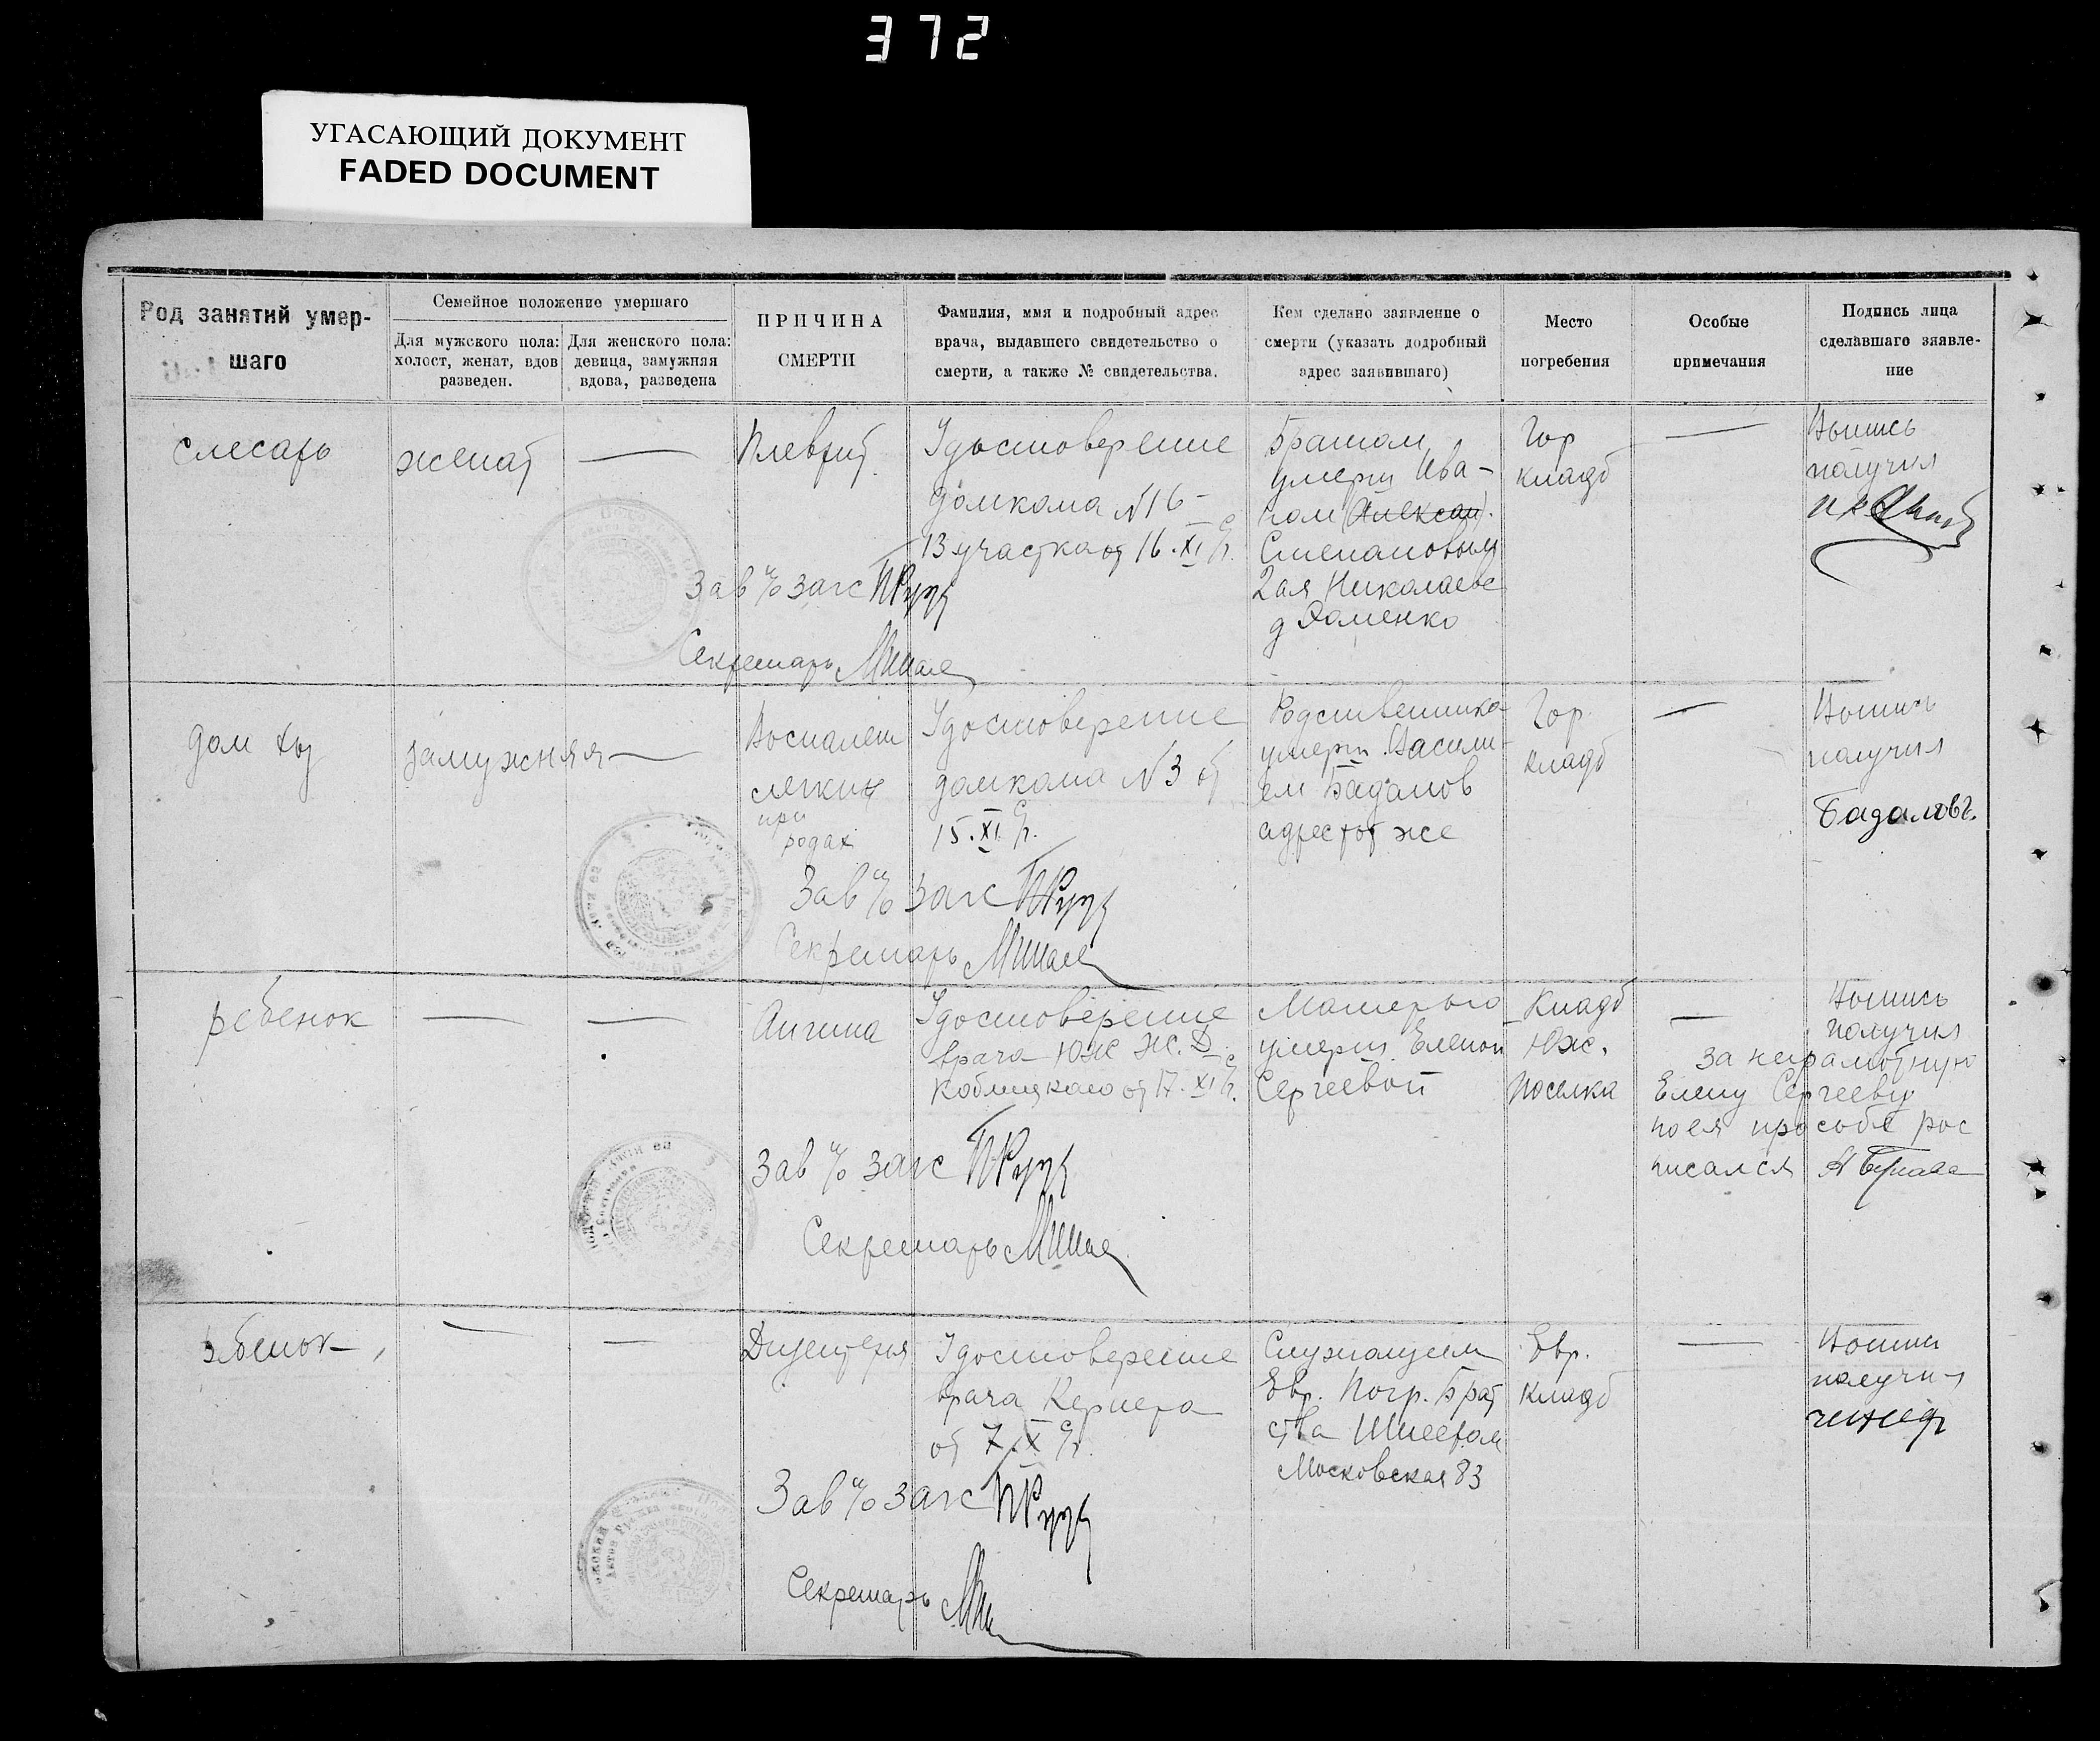 372
УГАСАЮЩИЙ ДОКУМЕНТ
FADED DOCUMENT
Род занятий умер-
шаго
Семейное положение умершаго
Для мужского пола:
холост, женат, вдов
разведен.
Для женского пола:
девица, замужняя
вдова, разведена
ПРИЧИНА
СМЕРТИ
Фамилия, имя и подробный адрес
врача, выдавшего свидетельство о
смерти, а также № свидетельства.
Кем сделано заявление о
смерти (указать додробный
адрес заявившаго)
Место
погребения
Особые
примечания
Подпись лица
сделавшаго заявле-
ние
слесарь
женат
—
Плеврит
Удостоверение
домкома N 16 -
13 участка от 16.XI с/г.
Братом
умерш Ива-
ном (Алексан).
Степановым
2ая Николаевс
д Фоменко
Гор
кладб
—
Выпись
получил
Зав п/о загс
Секретарь
дом хоз
замужняя
—
Воспален
легких
при
родах
Удостоверение
домкома N 3 от
15.XI с/г.
Родственника
умерш. Васили-
ем Бадалов
адрес тот же
Гор.
кладб
—
Выпись
получил
Бадалов
Зав п/о загс
Секретарь
ребенок
—
—
Ангина
Удостоверение
врача Юж Ж. Д
от 17.XI с/г.
Матерью
умерш. Еленой
Сергеевой
Кладб
Юж.
Поселка
—
Выпись
получил
За неграмотную
Елену Сергееву
по ея просьбе рос
писался
Зав п/о загс
Секретарь
ебенок
—
—
Дизентерия
Удостоверение
врача Кернера
от 7.X с/г.
Служащим
Евр. Погр. Брат
ства
Московская 83
Евр.
кладб
—
Выпись
получи-л
Зав п/о загс
Секретарь